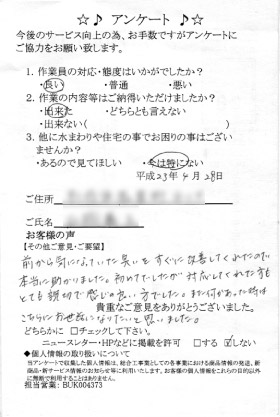 ☆♪ アンケート ♪☆
今後のサービス向上の為、お手数ですがアンケートに
ご協力をお願い致します。
1．作業員の対応・態度はいかがでしたか？
・良い ・普通 ・悪い
2．作業の内容等はご納得いただけましたか？
・出来た ・どちらとも言えない
・出来ない( )
3．他に水まわりや住宅の事でお困りの事はござい
ませんか？
・あるので見てほしい ・今は特にない
平成23年4月28日
ご住所
ご氏名
お客様の声
【その他ご意見・ご要望】
前から気になっていた臭いをすぐに改善してくれたので
本当に助かりました。初めてでしたが対応してくれた方も
とても親切で感じの良い方でした。また何かあった時は
貴重なご意見をありがとうございました。
こちらにお世話になりたいと思いました。
どちらかに □チェックして下さい。
ニュースレター・HPなどに掲載を許可 □する ☑しない
◆個人情報の取り扱いについて
当アンケートで収集した個人情報は、総合工事業としての各事業における商品情報の発送、新
商品・新サービス情報のお知らせ等に利用いたします。お客様の個人情報をこれらの目的以外
に無断で利用することはありません。
担当営業: BUK004373